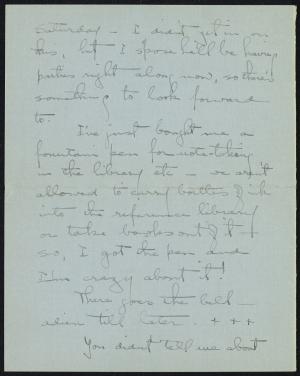 saturday — I didn't get in on
this, but I spose he'll be having
parties right along now, so there's
something to look forward
to.
I've just bought me a
fountain pen for note-taking
in the library etc — we aren't
allowed to carry bottles of ink
into the reference library
or take books out of it —
so, I got the pen and
I'm crazy about it!
There goes the bell —
adieu till later. + + +
You didn't tell me about